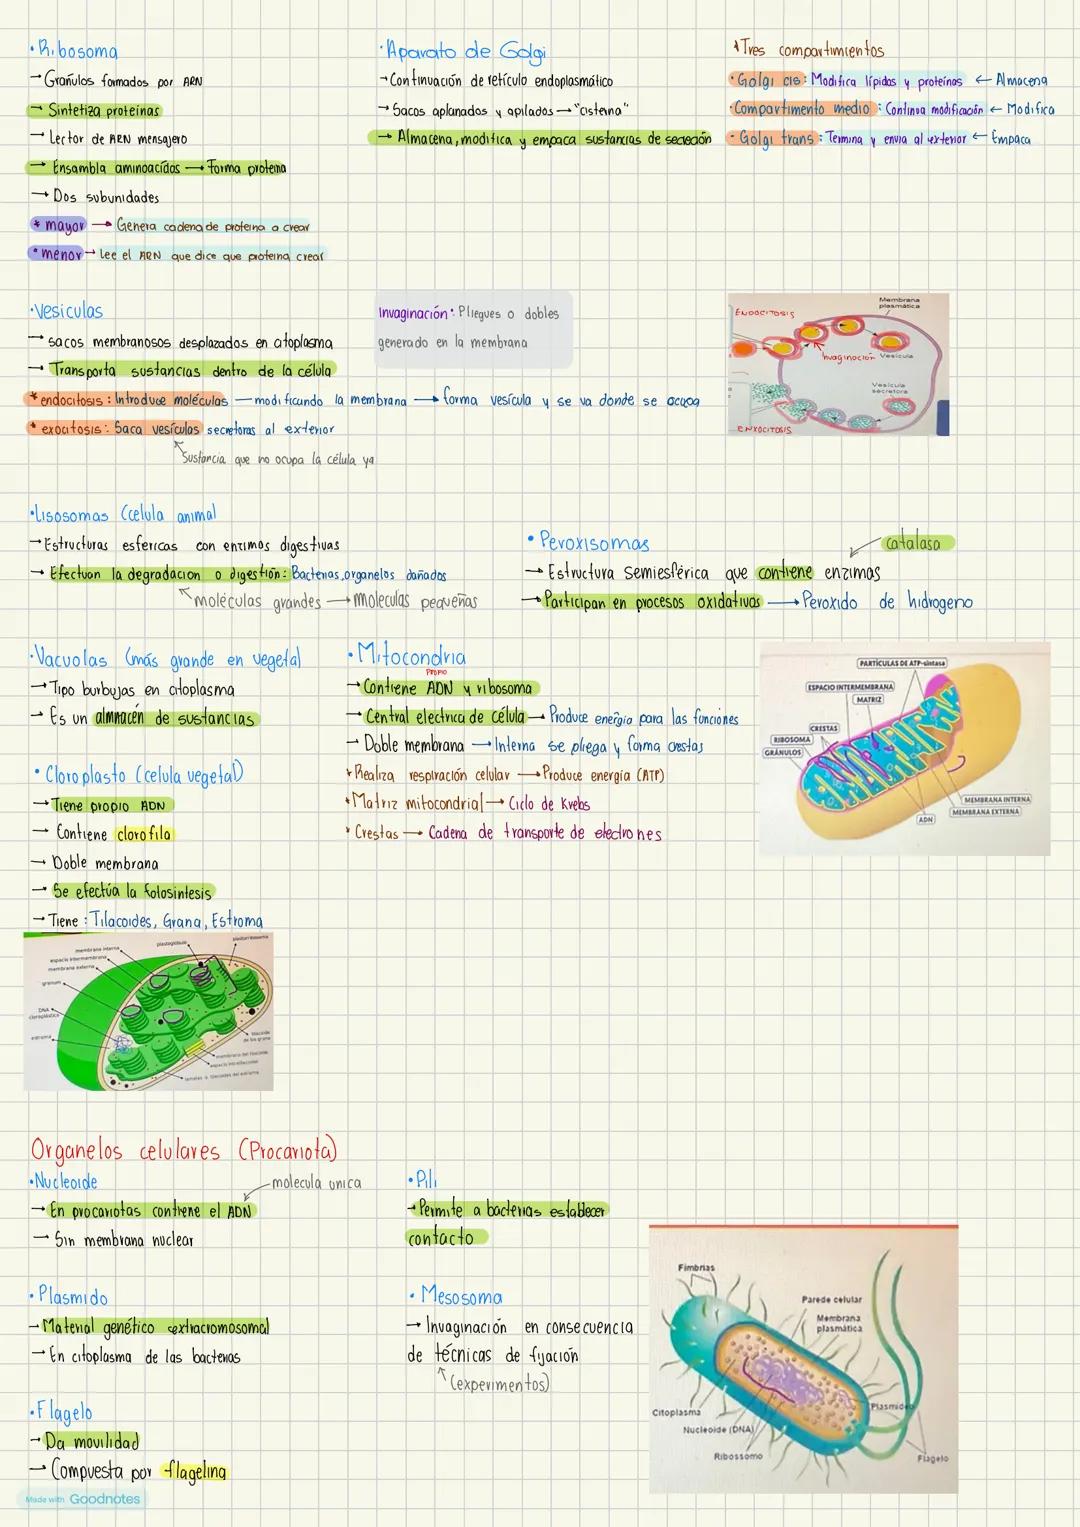 ·Ribosoma
→ Grañulos formados por ARN
→ Sintetiza proteinas
→ Lector de ARN mensajero
→ Ensambla aminoacidos → Forma proteina
→ Dos subunidades
* mayor → Genera cadena de proteina a crear
* menor → Lee el ARN que dice que proteina crear
·Aparato de Golgi
→ Continuación de retículo endoplasmático
→ Sacos aplanados y apilados → "cisterna"
→ Almacena, modifica y empaca sustancias de secreción
*Tres compartimientos
·Golgi cis: Modifica lípidos y proteínas ← Almacena
·Compartimento medio: Continua modificación ← Modifica
·Golgi trans: Termina y envia al exterior ← Empaca
·Vesiculas
→ sacos membranosos desplazados en citoplasma
→ Transporta sustancias dentro de la célula
*endocitosis: Introduce moléculas — modificando la membrana → forma vesícula y se va donde se ocupa
* exocitosis: Saca vesículas secretoras al exterior
Sustancia que no ocupa la célula ya
Invaginación: Pliegues o dobles
generado en la membrana
Membrana
plasmática
ENDOCITOSIS
Invaginación
Vesícula
Vesícula
secretora
EXOCITOSIS
·Lisosomas (celula animal
→ Estructuras esfericas con enzimas digestivas
→ Efectuan la degradacion o digestión: Bacterias, organelos dañados
moléculas grandes → moleculas pequeñas
·Peroxisomas
catalasa
→ Estructura Semiesférica que contiene enzimas
→ Participan en procesos oxidativos → Peroxido de hidrogeno
·Vacuolas (más grande en vegetal)
→ Tipo burbujas en citoplasma
→ Es un almnacén de sustancias
·Mitocondria
PROPIO
→ Contiene ADN y ribosoma
→ Central electrica de célula → Produce energia para las funciones
→ Doble membrana → Interna se pliega y forma crestas
* Realiza respiración celular → Produce energía (ATP)
* Matriz mitocondrial → Ciclo de Krebs
* Crestas → Cadena de transporte de electrones
PARTÍCULAS DE ATP-sintasa
ESPACIO INTERMEMBRANA
MATRIZ
CRESTAS
RIBOSOMA
GRÁNULOS
MEMBRANA INTERNA
MEMBRANA EXTERNA
ADN
·Cloroplasto (celula vegetal)
→ Tiene propio ADN
→ Contiene clorofila
→ Doble membrana
→ Se efectúa la fotosintesis
→ Tiene: Tilacoides, Grana, Estroma
membrana interna
espacio intermembrana
membrana externa
granum
DNA
cloroplástico
estroma
plastoglóbulo
plastorribosoma
tilacoide
de los grana
membrana del tilacoide
espacio intratilacoidal
lamelas o tilacoides del estroma
Organelos celulares (Procariota)
·Nucleoide
molecula unica
→ En procariotas contiene el ADN
→ Sin membrana nuclear
·Plasmido
→ Material genético extracromosomal
→ En citoplasma de las bacterias
·Flagelo
→ Da movilidad
→ Compuesta por flagelina
·Pili
→ Permite a bacterias establecer
contacto
·Mesosoma
→ Invaginación en consecuencia
de técnicas de fijación
(experimentos)
Fímbrias
Parede celular
Membrana
plasmática
Citoplasma
Nucleoide (DNA)
Ribossomo
Plasmídeo
Flagelo
Made with Goodnotes